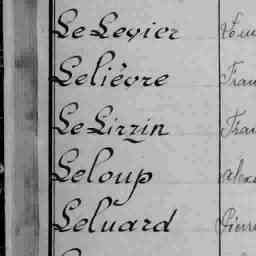 Le Levier
Lelièvre Fran
Le Lizzin Fran
Leloup Alex
Leluard Pierre